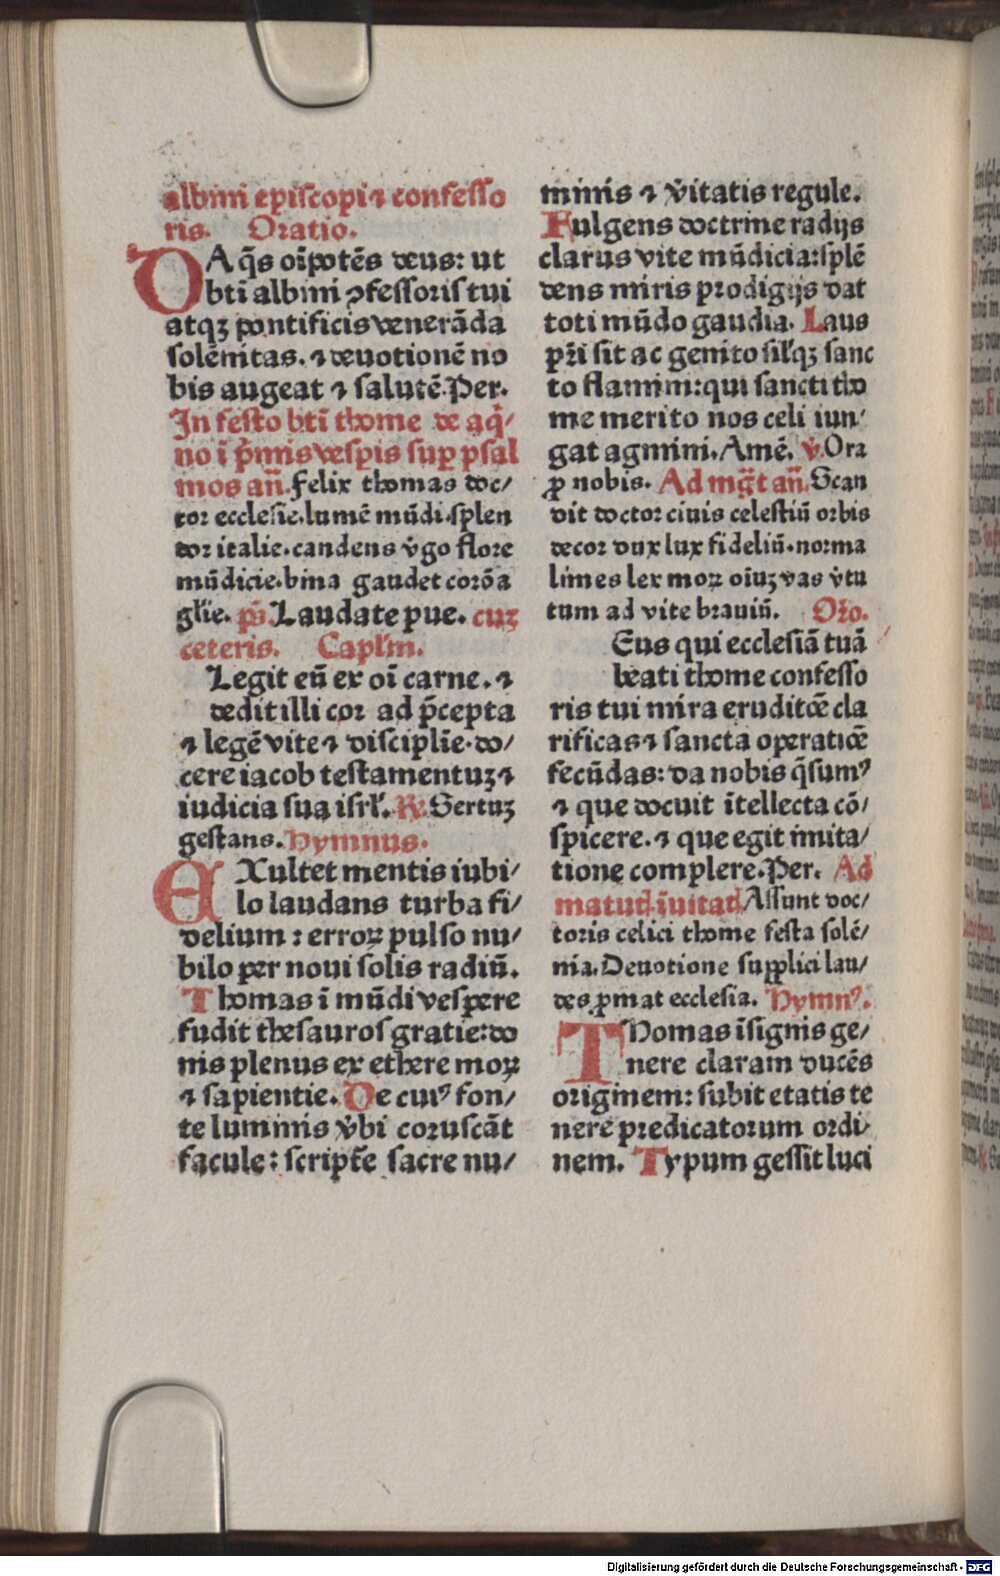 albini episcopi ⁊ confesso
ris. Oratio.
DA q̄s oīpotēs deus: ut
bt̄i albini ꝯfessoris tui
atqꝫ pontificis venerāda
solēnitas. ⁊ deuotionē no
bis augeat ⁊ salutē. Per.
In festo bt̄i thome de aq̄⸗
no ī p̄mis vesp̄is sup psal
mos an̄. Felix thomas doc⸗
tor ecclesie. lumē mūdi. splen
dor italie. candens v̄go flore
mūdicie. bina gaudet corōa
gl̄ie. ps̄. Laudate pue. cuꝫ
ceteris. Capl̄m.
Legit eū ex oī carne. ⁊
dedit illi cor ad p̄cepta
⁊ legē vite ⁊ disciplīe. do⸗
cere iacob testamentuꝫ ⁊
iudicia sua isrl̄. R̄. Sertuꝫ
gestans. Hymnus.
EXultet mentis iubi⸗
lo laudans turba fi⸗
delium: erroꝝ pulso nu⸗
bilo per noui solis radiū.
Thomas ī mūdi vespere
fudit thesauros gratie: do
nis plenus ex ethere moꝝ
⁊ sapientie. De cuiꝰ fon⸗
te luminis v̄bi coruscāt
facule: scriptē sacre nu⸗
minis ⁊ v̄itatis regule.
Fulgens doctrine radijs
clarus vite mūdicia: splē
dens miris prodigijs dat
toti mūdo gaudia. Laus
pr̄i sit ac genito sil̄qꝫ sanc
to flamini: qui sancti tho
me merito nos celi iun⸗
gat agmini. Amē. v̄. Ora
ꝓ nobis. Ad mḡt an̄. Scan
dit doctor ciuis celestiū orbis
decor dux lux fideliū. norma
limes lex moꝝ oīuꝫ vas v̄tu
tum ad vite brauiū. Or̄o.
Eus qui ecclesiā tuā
beati thome confesso
ris tui mira eruditōe cla
rificas ⁊ sancta operatiōe
fecūdas: da nobis q̄sumꝰ
⁊ que docuit ītellecta cō⸗
spicere. ⁊ que egit imita⸗
tione complere. Per. Ad
matut̄. īuitat̄. Assunt doc⸗
toris celici thome festa solē⸗
nia. Deuotione supplici lau⸗
des ꝓmat ecclesia. Hymnꝰ.
THomas īsignis ge⸗
nere claram ducēs
originem: subit etatis te
nere predicatorum ordi⸗
nem. Typum gessit luci
Digitalisierung gefördert durch die Deutsche Forschungsgemeinschaft - DFG